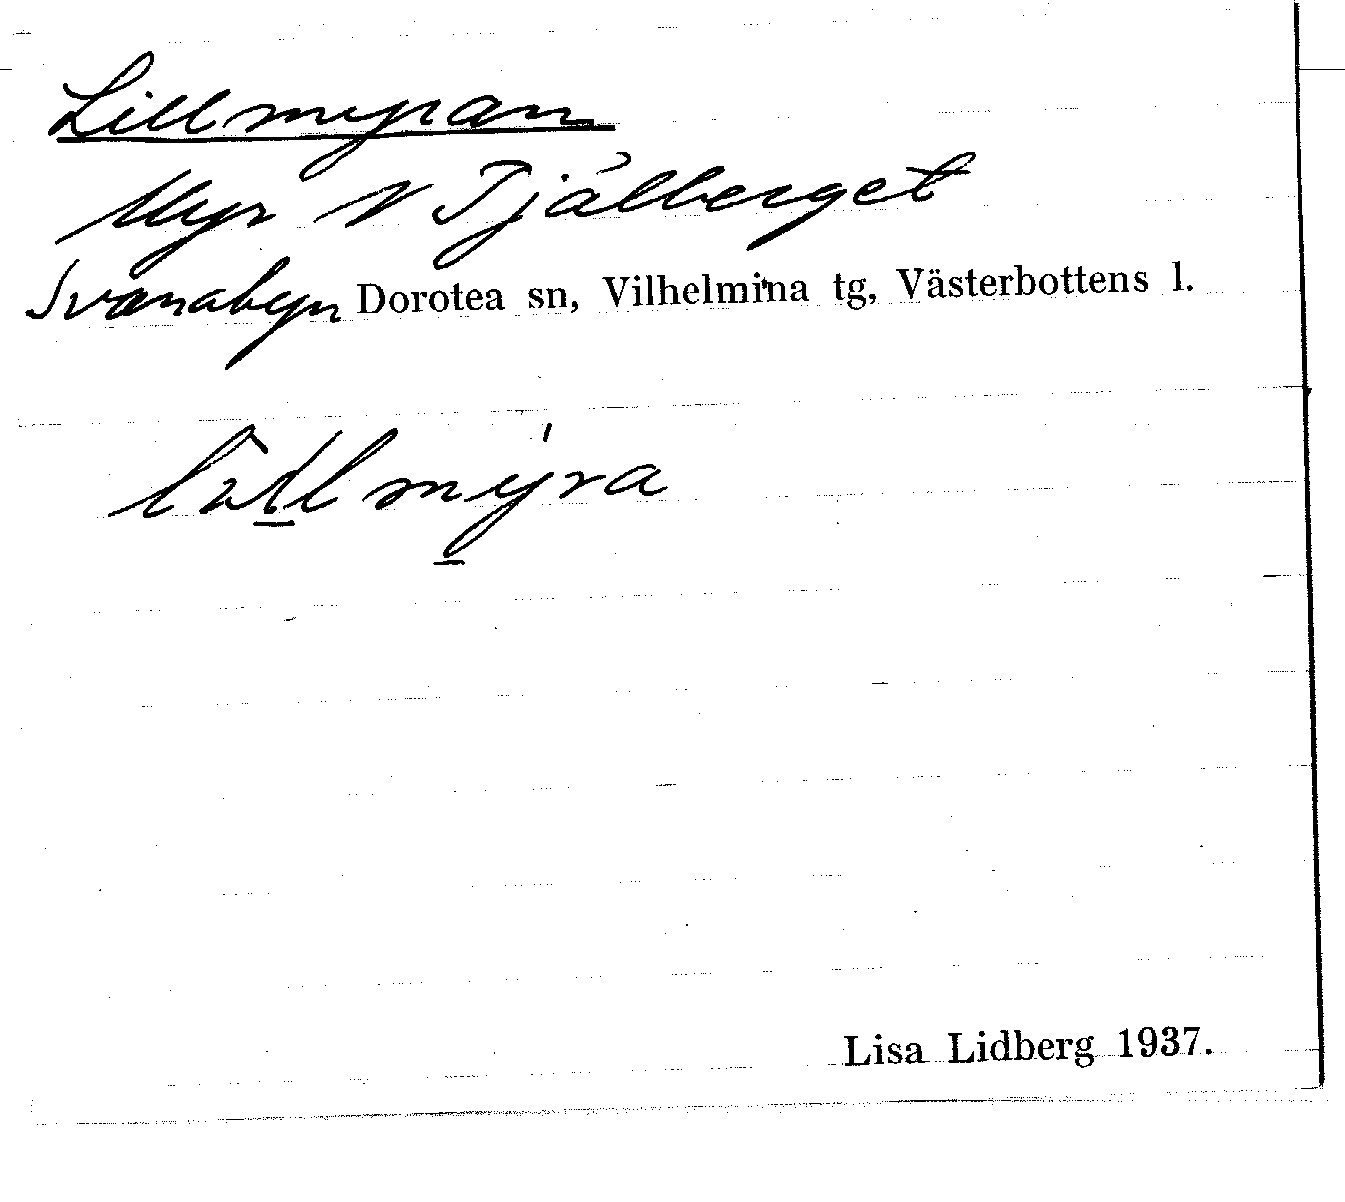 Lillmyran
Myr N Tjålberget
Svanabyn Dorotea sn, Vilhelmina tg, Västerbottens l.
Lisa Lidberg 1937.